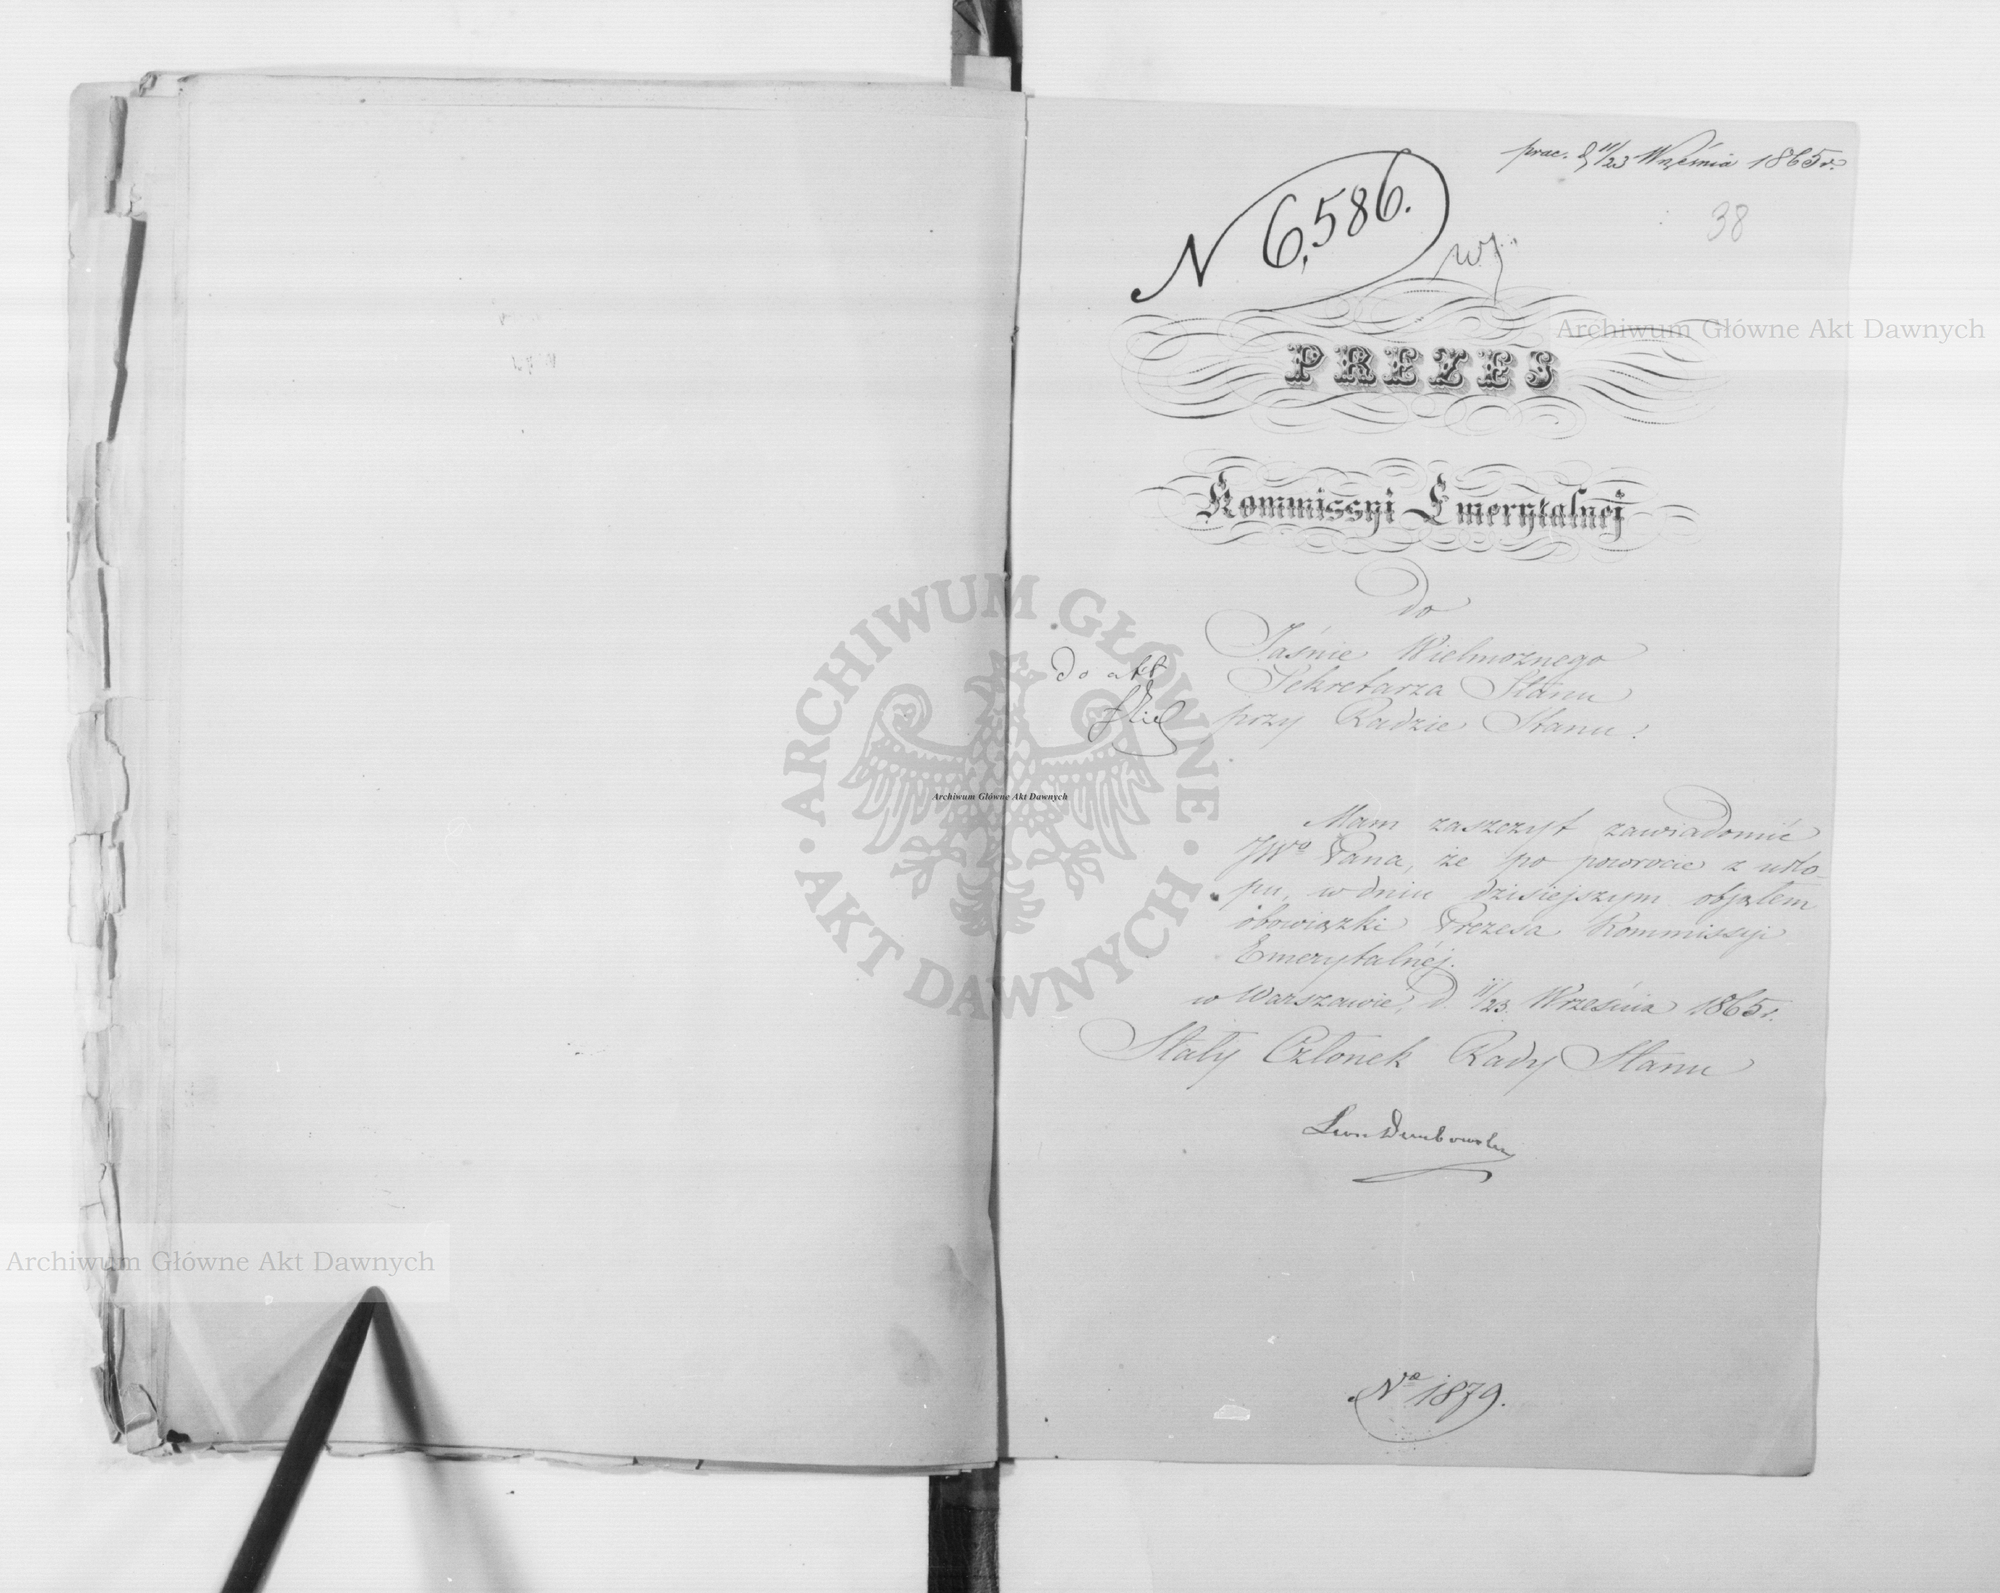 prae. d 11/23 Września 1865 r.
38
N 6,586.
PREZES
Kommissyi Emerytalnej
do
Jaśnie Wielmożnego
Sekretarza Stanu
przy Radzie Stanu.
Do akt
Mam zaszczyt zawiadomić
JWo Pana, że po powrocie z urlo-
pu, w dniu dzisiejszym objąłem
obowiązki Prezesa Kommissyi
Emerytalnéj.
w Warszawie, d. 11/23 Września 1865 r.
Stały Członek Rady Stanu
Leon Dembowski
No 1879.
Archiwum Główne Akt Dawnych
ARCHIWUM GŁÓWNE AKT DAWNYCH
Archiwum Główne Akt Dawnych
Archiwum Główne Akt Dawnych